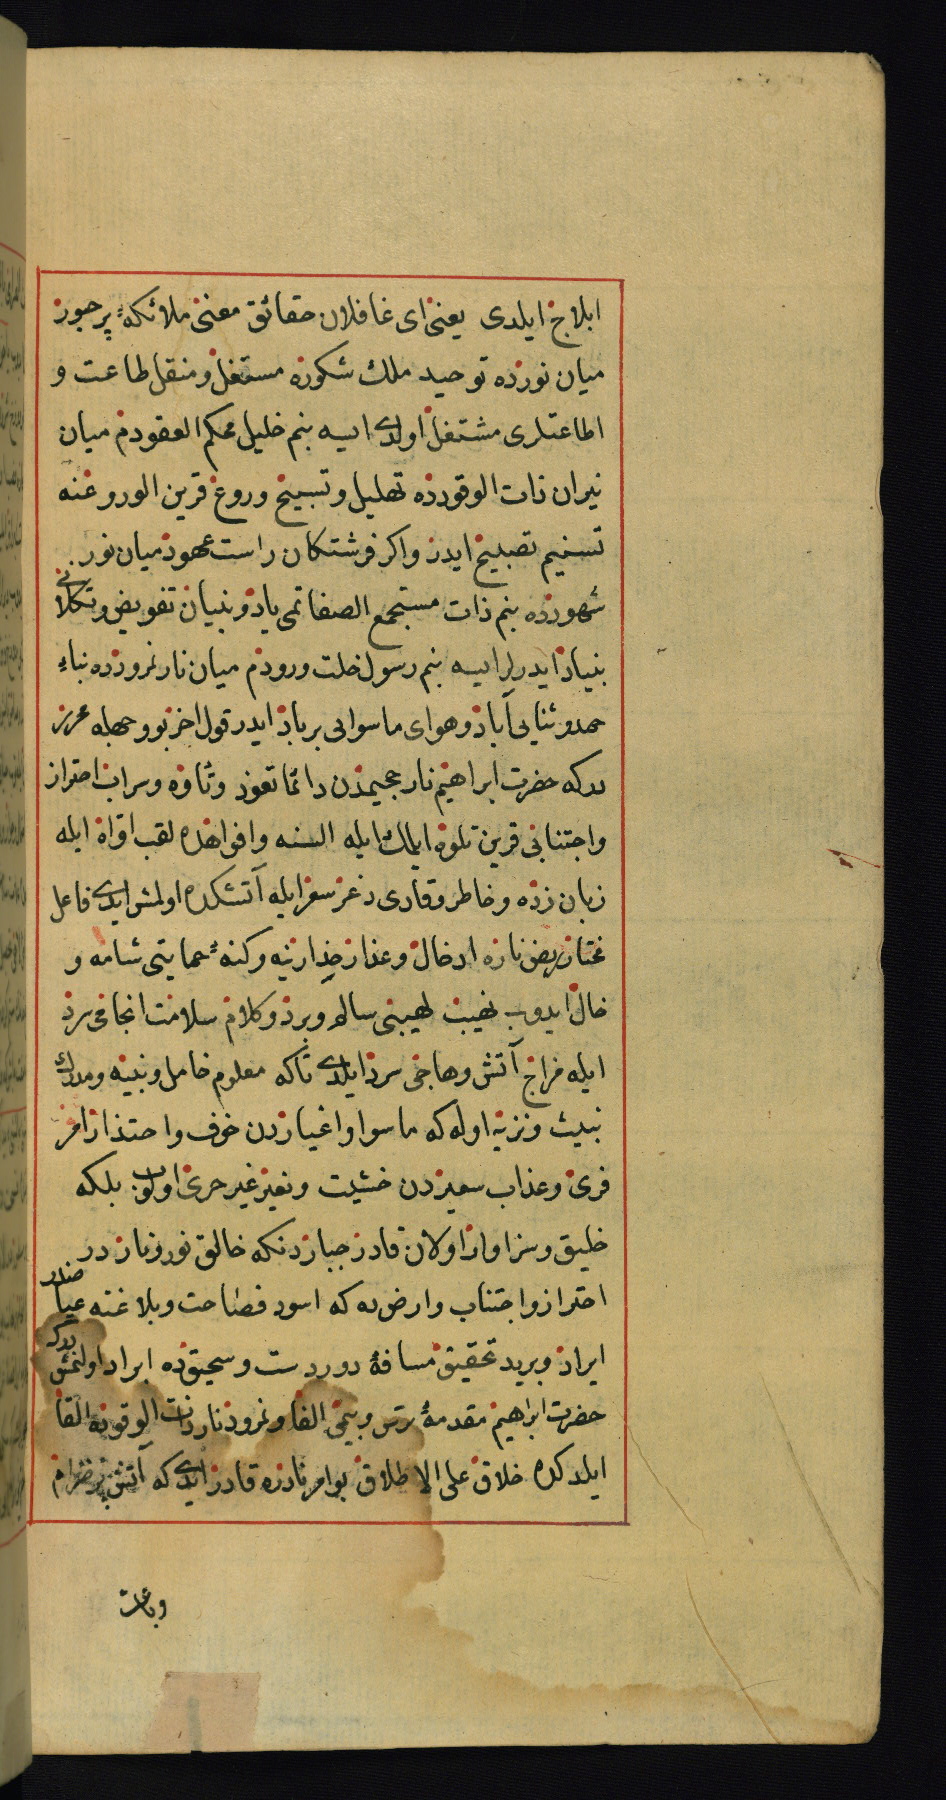 ابلاج ایلدی یعنی ای غافلان حقائق معنی ملائکهٔ پر حبور
میان نورده توحید ملك شکورە مستغل و منقل طاعت و
اطاعتلری مشتغل اولدی ایسه بنم خلیل محکم العقودم میان
نیران ذات الوقودده تهلیل و تسبیح و روغ قرین الوروغنه
تسنیم تصبیح ایدر و اکر فرشتکان راست عهود میان نور
شهودده بنم ذات مستجمع الصفاتمی یاد و بنیان تفویض و تکلانی
بنیاد ایدرلر ایسه بنم رسول خلت ورودم میان نار نمرودده بناء
حمد و ثنایی آباد و هوای ماسوایی برباد ایدر قول اخر بو وجهله محرر
در که حضرت ابراهیم نار جحیمدن دائما تعوذ و تأوه و سراب احتراز
و اجتنابی قرین تلوه ایلمك ایله السنه و افواهده لقب اواه ایله
زبان زده و خاطر وقادی دغدغه سقر ایله آتشکده اولمش ایدی فاعل
مختار نار ادخال و عذار و کنه حمایتی شامه و
خال ایدوب نهیب لهیبنی ساله و برد و کلام سلامت انجامی سرد
ایله فراج آتش وهاجی سرد ایلدی تاکه معلوم خامل و نبیه و مدرك
اوله که ماسوا و اغیاردن خوف و احتذار امر
فری و عذاب سعیردن خشیت و نفیر غیر حری اولوب بلکه
خلیق و سزاوار اولان قادر جباردنکه خالق نور و نار در
احتراز و اجتناب و ارض به که اسود فصاحت و بلاغته عیاضدر
ایراد و برید تحقیق مسافهٔ دوردست و سحیقده ابراد اولنمشدرکه
حضرت ابراهیم مقدمهٔ ترس و بیمی الغا و نمرود نار ذات الوقوده القا
ایلدکده خلاق علی الاطلاق بو امر نادره قادر ایدی که آتش پر ضرام